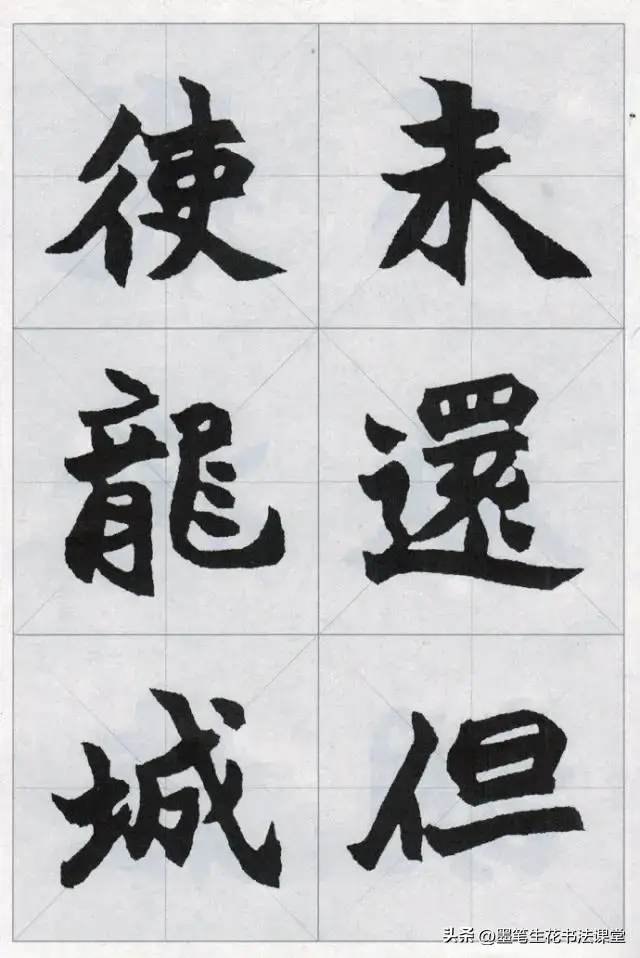 未還但
使龍城
头条 @墨笔生花书法课堂